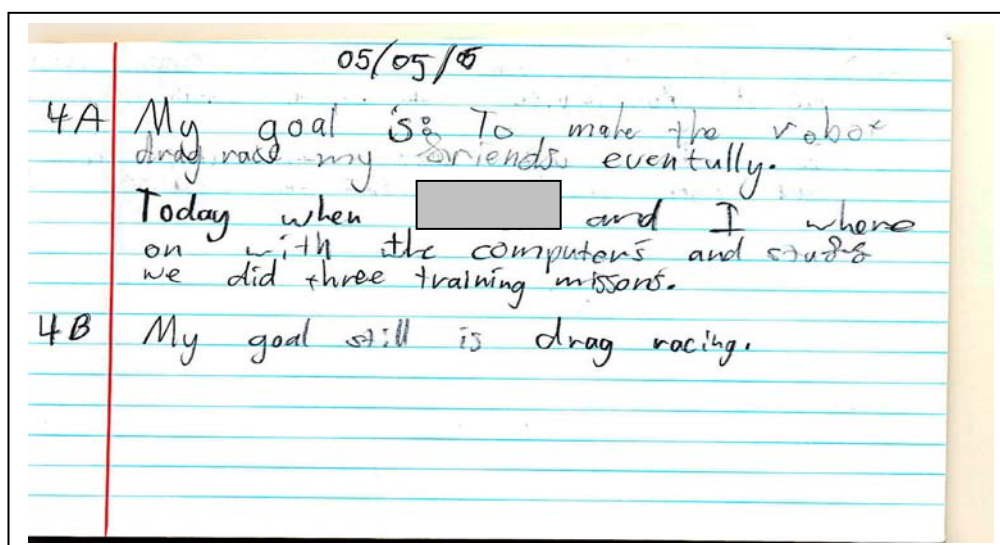 05/05/05
4A My goal is: To make the robot
drag race my friends eventully.
Today when and I where
on with the computers and stuff
we did three training missons.
4B My goal still is drag racing.